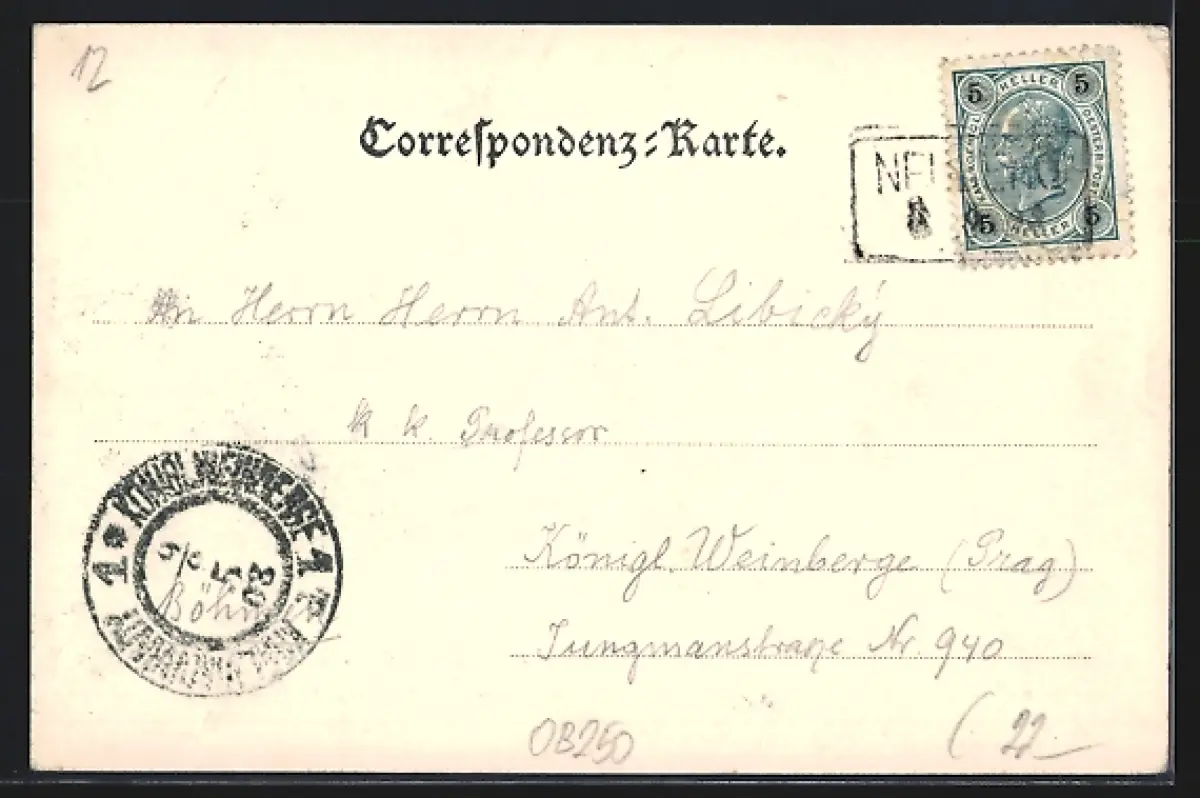 12
Correspondenz-Karte.
5 HELLER 5
5 HELLER 5
8
An Herrn Herrn Ant. Libický
k k. Professor
1 * KÖNIGL. WEINBERGE 1 *
9/5 03
Böhmen
Königl. Weinberge (Prag)
Jungmanstraße Nr. 940
OB250
(22